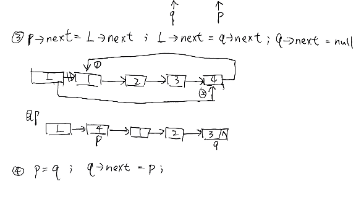 q p
③ p→next = L→next ; L→next = q→next ; q→next = null
①
L 1 2 3 4
③
即
L 4 1 2 3 ∧
p q
④ p = q ; q→next = p ;